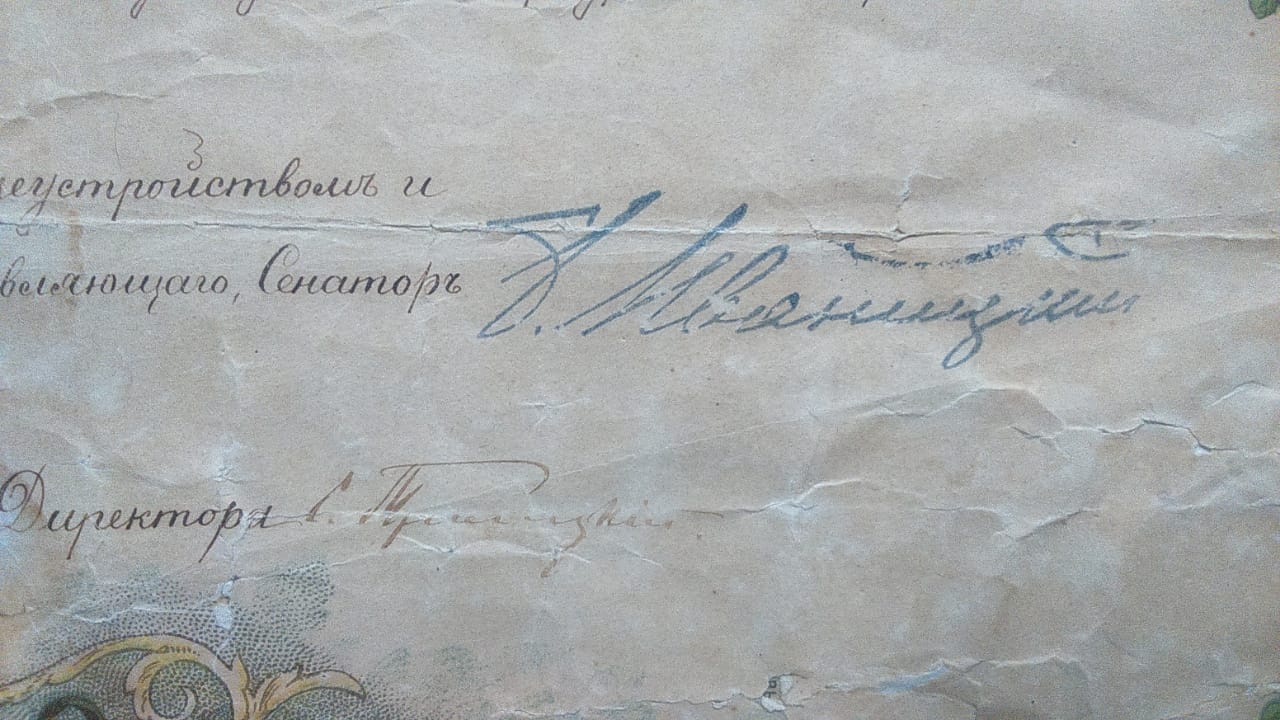 леустройствомъ и
вляющаго, Сенаторъ Б. Иваницкій
Директора С.